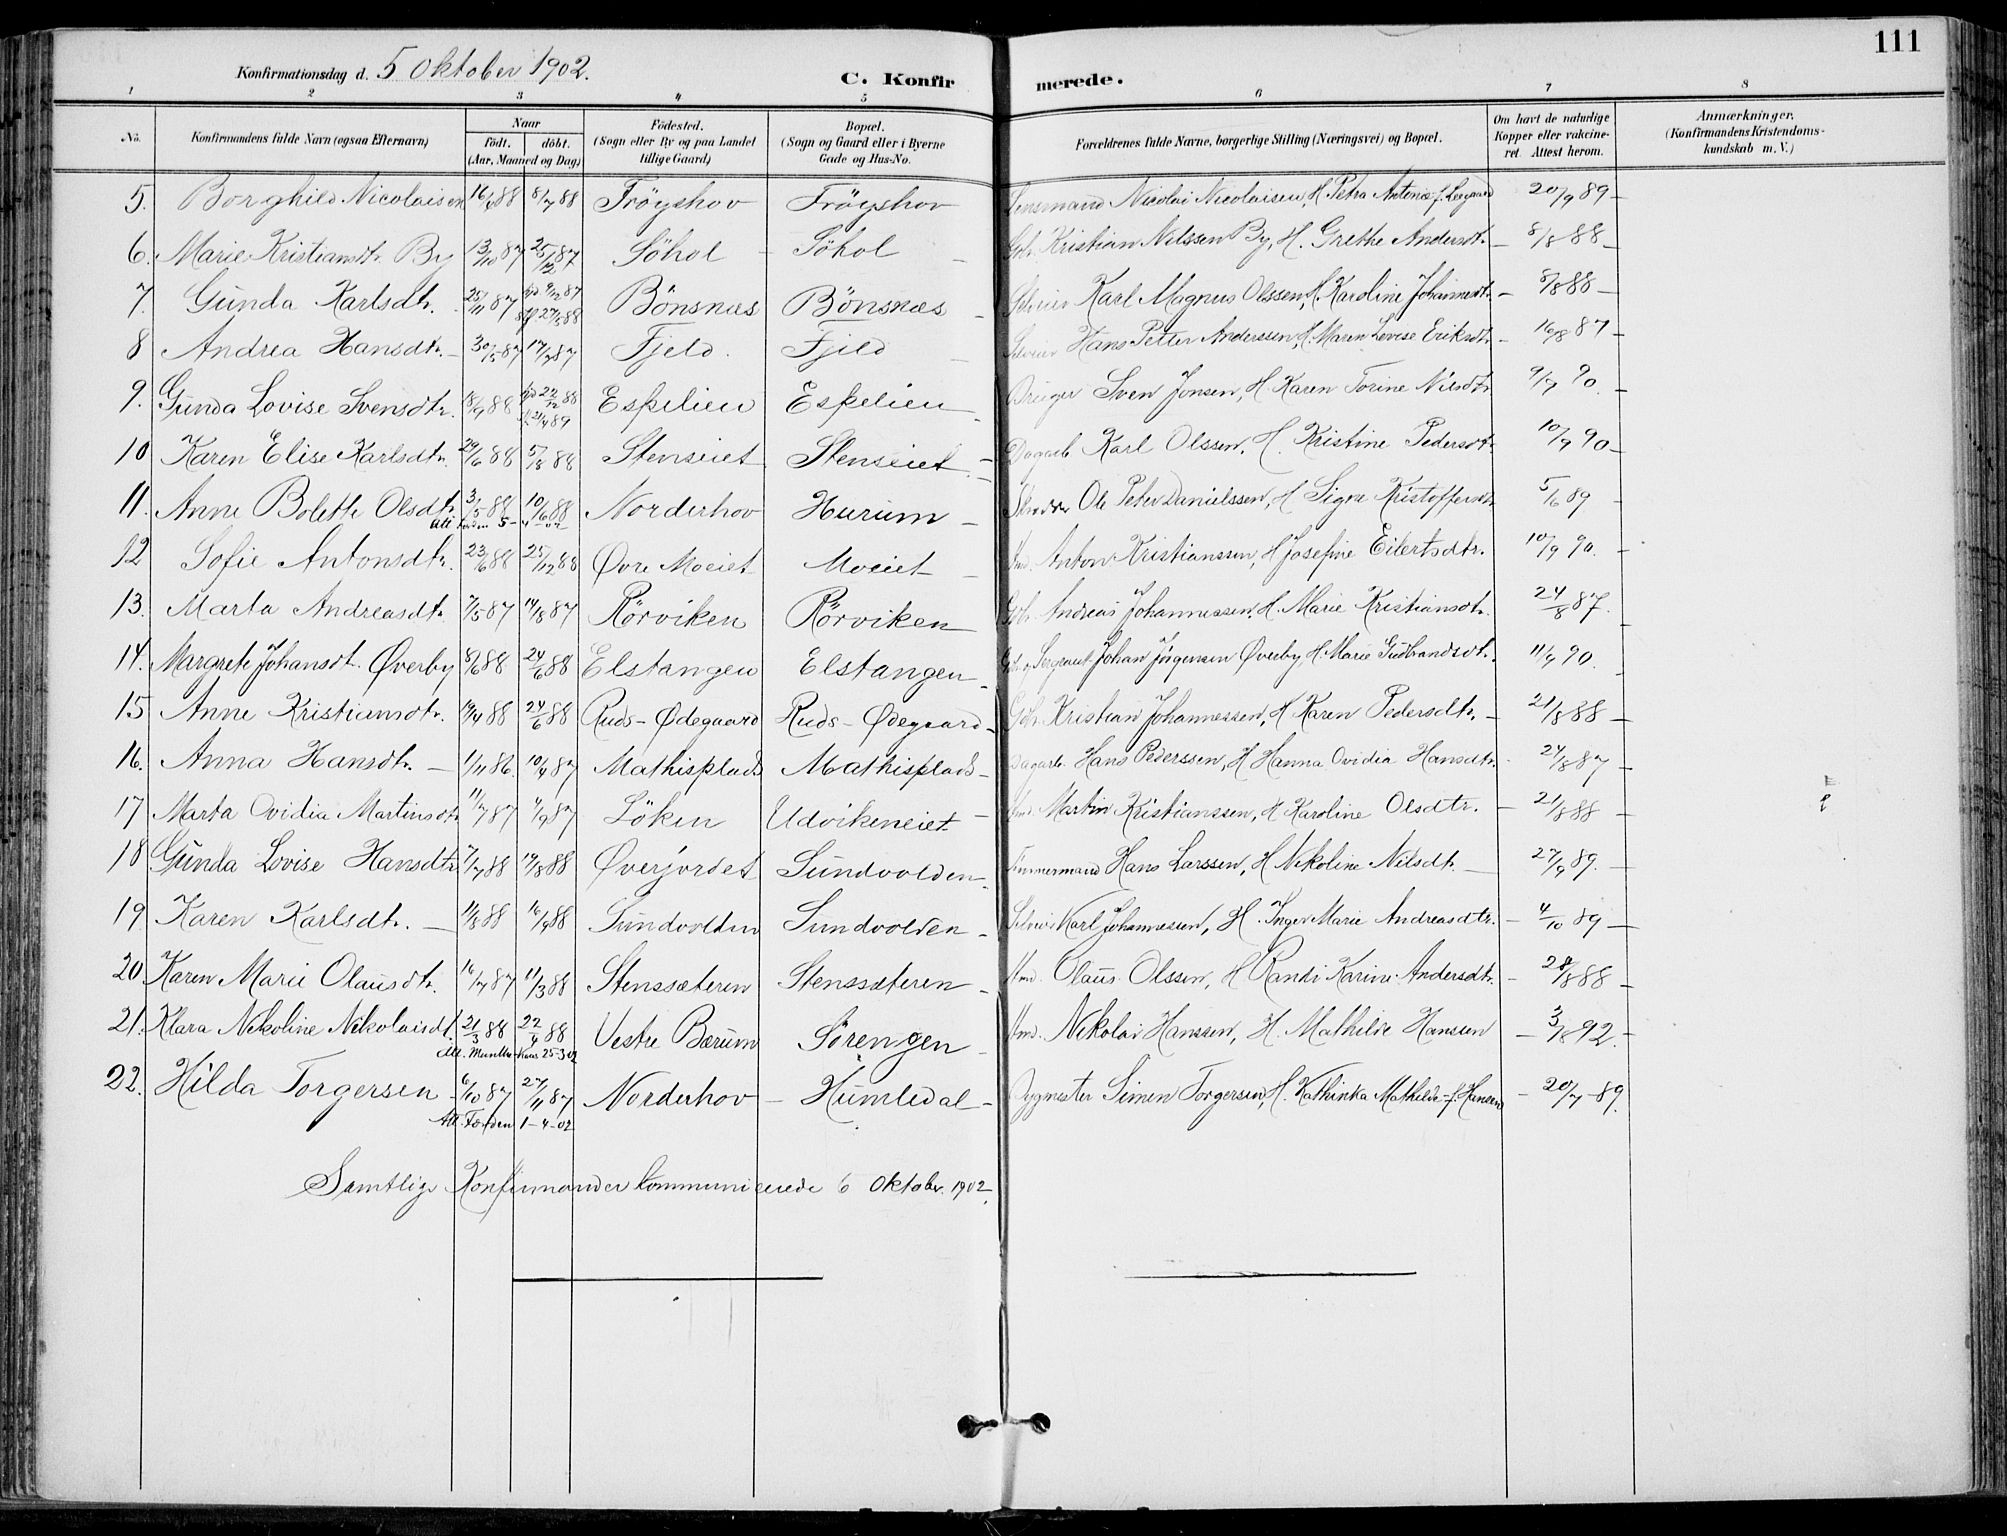 111
Konfirmationsdag d. 5 Oktober 1902.
C. Konfirmerede.
1 2 3 4 5 6 7 8
No. Konfirmandens fulde Navn (ogsaa Efternavn) Naar födt. döbt. (Aar, Maaned og Dag) Födested. (Sogn eller By og paa Landet tillige Gaard) Bopæl. (Sogn og Gaard eller i Byerne Gade og Hus-No. Forældrenes fulde Navne, borgerlige Stilling (Næringsvei) og Bopæl. Om havt de naturlige Kopper eller vakcineret. Attest herom. Anmærkninger. (Konfirmandens Kristendomskundskab m. V.)
5. Borghild Nicolaisen 16/4 88 8/7 88 Fröyshov Fröyshov Lensmand Nicolai Nicolaisen, H. Petra Antonie f. 20/9 89 —
6. Marie Kristiansdt. By 13/10 87 25/12 87 Söhol Söhol — Gbr. Kristian Nilssen By, H. Grethe Andersdt. — 8/8 88 —
7. Gunda Karlsdt. 25/11 87 hjd 9/12 87 27/5 88 Bönsnæs Bönsnæs — Selveier Karl Magnus Olssen, H. Karoline Johannesdt. — 8/8 88 —
8 Andrea Hansdt. — 30/5 87 17/7 87 Fjeld. Fjeld — Selveier Hans Petter Anderssen, H. Maren Lovise Eriksdt. — 16/8 87 —
9. Gunda Lovise Svensdtr. 18/9 88 hjd 22/12 88 21/4 89 Espelien Espelien — Bruger Sven Jonsen, H. Karen Torine Nilsdt. 9/7 90. —
10 Karen Elise Karlsdt. 29/6 88 5/8 88 Stenseiet Stenseiet — Dagarb. Karl Olssen, H. Kristine Pedersdt. 10/9 90 —
11. Anne Bolette Olsdt. 3/5 88 10/6 88 Norderhov Hurum — Skrædder Ole Peter Danielssen, H. Signe Kristoffersdt. 5/6 89 —
12 Sofie Antonsdt. 23/6 88 25/12 88 Øvre Moeiet Moeiet — Hmd. Anton Kristianssen, H. Josefine Eilertsdtr. 10/9 90. —
13. Marta Andreasdt. 7/5 87 14/8 87 Rörviken Rörviken Gbr. Andreas Johannessen, H. Marie Kristiansdt. 24/8 87.
14. Margrete Johansdt. Øverby 8/6 88 24/6 88 Elstangen Elstangen — Gbr. og Sergeant Johan Jörgensen Øverby H. Marie Gudbrandsdt. 11/9 90.
15 Anne Kristiansdt. 14/4 88 24/6 88 Ruds-Ødegaard Ruds-Ødegaard — Gbr. Kristian Johannessen, H. Karen Pedersdt. — 21/8 88 —
16. Anna Hansdt. — 1/11 86. 10/4 87 Mathisplads Mathisplads — Dagarb. Hans Pederssen, H. Hanna Ovidia Hansdt. 24/8 87 —
17 Marta Ovidia Martinsdt. 11/7 87 4/9 87 Löken Udvikeneiet — Hmd. Martin Kristianssen, H. Karoline Olsdtr. — 21/8 88 —
18 Gunda Lovise Hansdtr 7/7 88 19/8 88 Øverjordet Sundvolden — Tömmermand Hans Larssen, H. Nikoline Nilsdt. — 27/9 89. —
19. Karen Karlsdt. — 11/8 88 16/9 88 Sundvolden Sundvolden — Selveier Karl Johannessen, H. Inger Marie Andreasdtr. — 4/10 89 —
20. Karen Marie Olausdt. 16/7 87 11/3 88 Stenssæteren Stenssæteren — Hmd. Olaus Olssen, H. Randi Karine Andersdt. — 28/8 88 —
21. Klara Nikoline Nikolaisdt. 21/3 88 22/4 88 Vestre Bærum Sörengen — Hmd. Nikolai Hanssen, H. Mathilde Hansen — 3/8 92. —
Att. 25-3 02
22. Hilda Torgersen — 6/10 87 27/11 87 Norderhov — Humledal — Bygmester Simen Torgersen, H. Kathinka Mathilde f. Hansen — 20/7 89.
Att. Forden 1-4-02
Samtlige Konfirmander kommunicerede 6 Oktober. 1902.